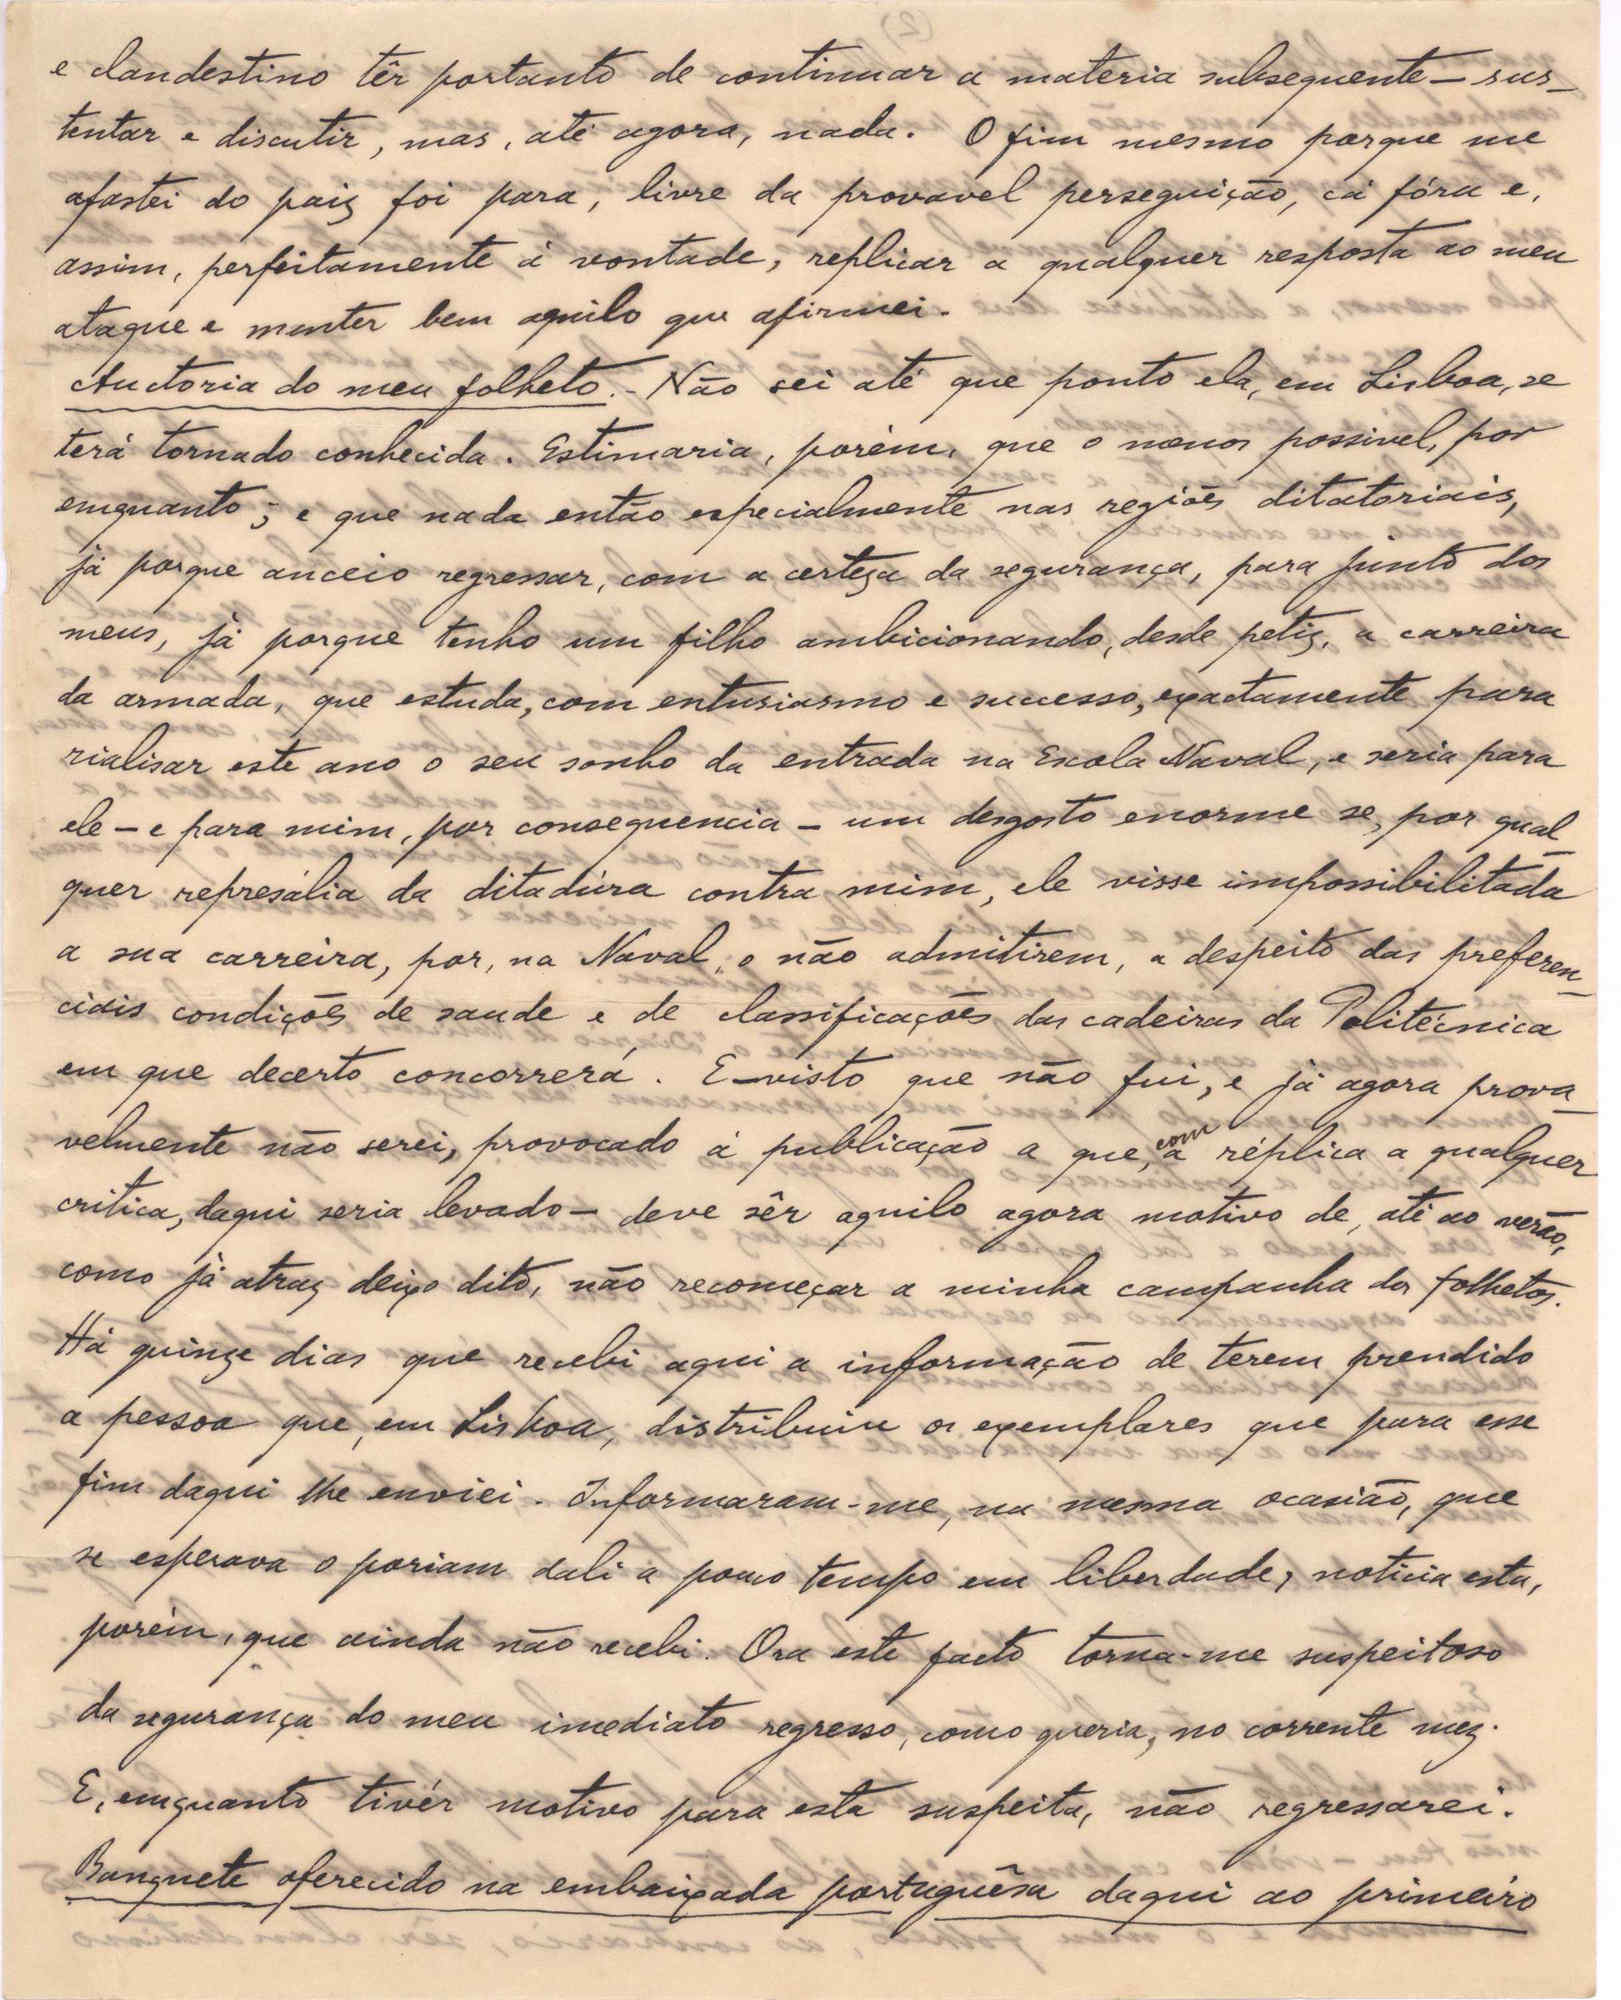 (2)
e clandestino têr portanto de continuar a materia subsequente — sus-
tentar e discutir, mas, até agora, nada. O fim mesmo porque me
afastei do paiz foi para, livre da provavel perseguição, cá fóra e,
assim, perfeitamente á vontade, replicar a qualquer resposta ao meu
ataque e manter bem aquilo que afirmei.
Auctoria do meu folheto. - Não sei até que ponto ela, em Lisboa, se
terá tornado conhecida. Estimaria, porém, que o menos possivel, por
emquanto; e que nada então especialmente nas regiões ditatoriais,
já porque anceio regressar, com a certeza da segurança, para junto dos
meus, já porque tenho um filho ambicionando, desde petiz, a carreira
da armada, que estuda, com entusiasmo e successo, exactamente para
rialisar este ano o seu sonho da entrada na Escola Naval, e seria para
ele — e para mim, por consequencia — um desgosto enorme se, por qual-
quer represália da ditadúra contra mim, ele visse impossibilitada
a sua carreira, por, na Naval, o não admitirem, a despeito das preferen-
ciais condições de saude e de classificações das cadeiras da Politécnica
em que decerto concorrerá. E — visto que não fui, e já agora prova-
velmente não serei, provocado á publicação a que, com a réplica a qualquer
critica, daqui seria levado — deve sêr aquilo agora motivo de, até ao verão,
como já atraz deixo dito, não recomeçar a minha campanha dos folhetos.
Há quinze dias que recebi aqui a informação de terem prendido
a pessoa que, em Lisboa, distribuiu os exemplares que para esse
fim daqui lhe enviei. Informaram-me, na mesma ocasião, que
se esperava o poriam dali a pouco tempo em liberdade, noticia esta,
porém, que ainda não recebi. Ora este facto torna-me suspeitoso
da segurança do meu imediato regresso, como queria, no corrente mez.
E, emquanto tivér motivo para esta suspeita, não regressarei.
Banquete oferecido na embaixada portuguêsa daqui ao primeiro